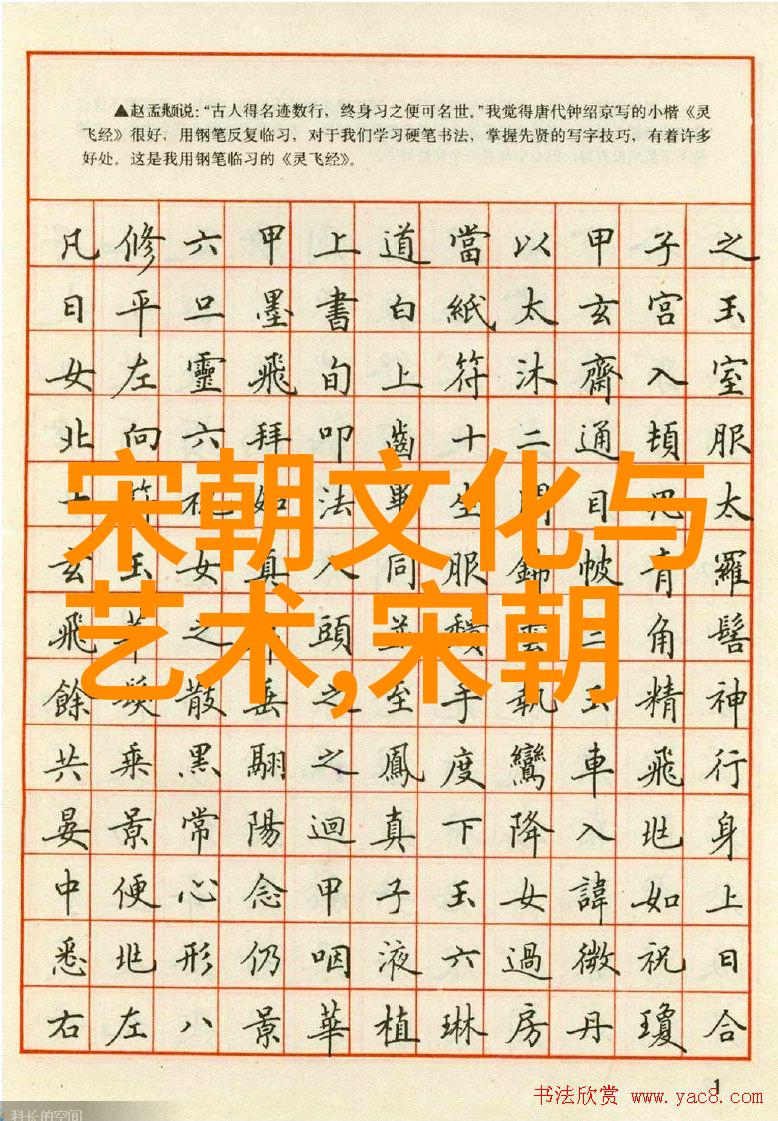 ▲赵孟頫说：“古人得名迹数行，终身习之便可名世。”我觉得唐代钟绍京写的小楷《灵
飞经》很好，用钢笔反复临习，对于我们学习硬笔书法，掌握先贤的写字技巧，有着许多
好处。这是我用钢笔临习的《灵飞经》。
凡修六甲上道當以甲子之
日平旦墨書白紙太玄宮玉
女左靈飛旬上符沐齋入室
北向六拜叩齒十二通頓服
符祝如法畢生閉目思太
玄玉女真人同服錦帔青羅
飛華之頭並雲三角髻
餘髮散垂之至手執玉精神
共乘黑翮之鳳度鸞車飛行
晏景常陽迴真下降入兆身
中便心念甲子玉女諱如上
悉兆形仍咽液六過微祝日
右左八景華植琳房丹瓊合
宋朝文化与
艺术,宋朝
1
书法欣赏 www.yac8.com
科长的空间